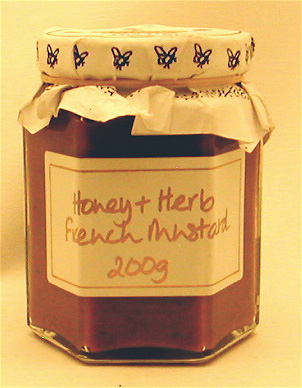 Honey + Herb
French Mustard
200g